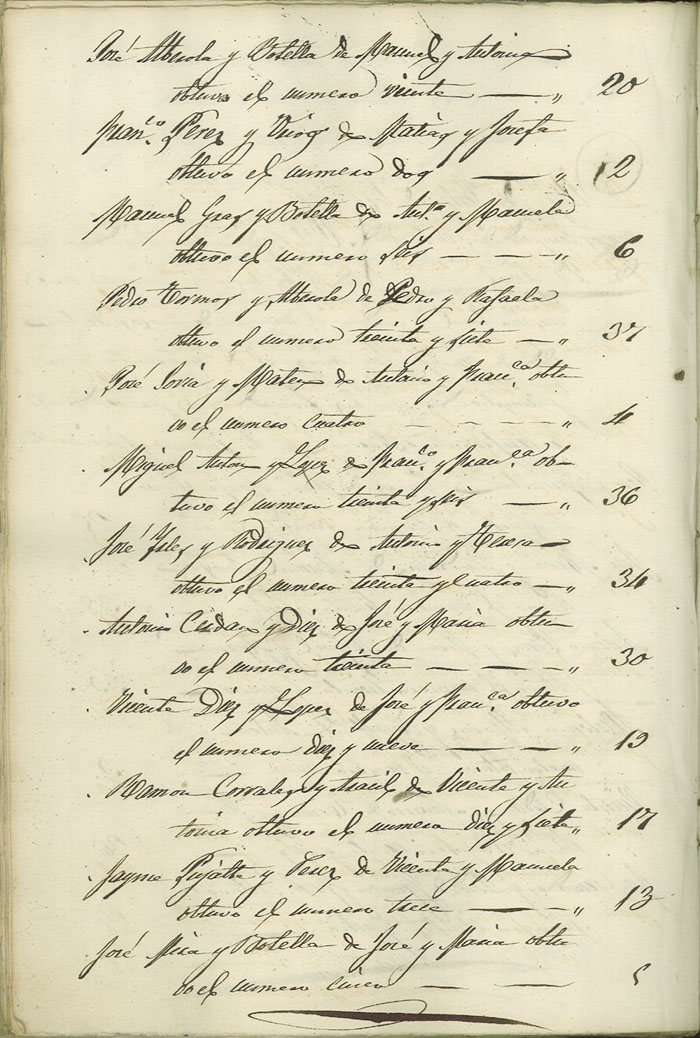 José Alberola y Botella de Manuel y Antonia
obtuvo el numero veinte — „ 20
Fran.co Perez y de Matias y Josefa
obtuvo el numero dos — „ 2
Manuel Gras y Botella de Ant.o y Manuela
obtuvo el numero seis — — — „ 6
Pedro Tormos y Alberola de Pedro y Rafaela
obtuvo el numero treinta y siete — „ 37
José Soria y Mateo de Antonio y Fran.ca obtu
vo el numero cuatro — — — — „ 4
Miguel Anton y Lopez de Fran.co y Fran.ca ob-
tuvo el numero treinta y seis — „ 36
José Yales y Rodriguez de Antonio y Teresa
obtuvo el numero treinta y cuatro — „ 34
Antonio Cerdan y Diez de José y Maria obtu
vo el numero treinta — — — „ 30
Vicente Diez y Lopez de José y Fran.ca obtuvo
el numero diez y nueve — — — „ 19
Ramon Corrales y de Vicente y An
tonia obtuvo el numero diez y siete „ 17
Jayme Pujalte y Perez de Vicente y Manuela
obtuvo el numero trece — — „ 13
José Mira y Botella de José y Maria obtu
vo el numero cinco — — 5